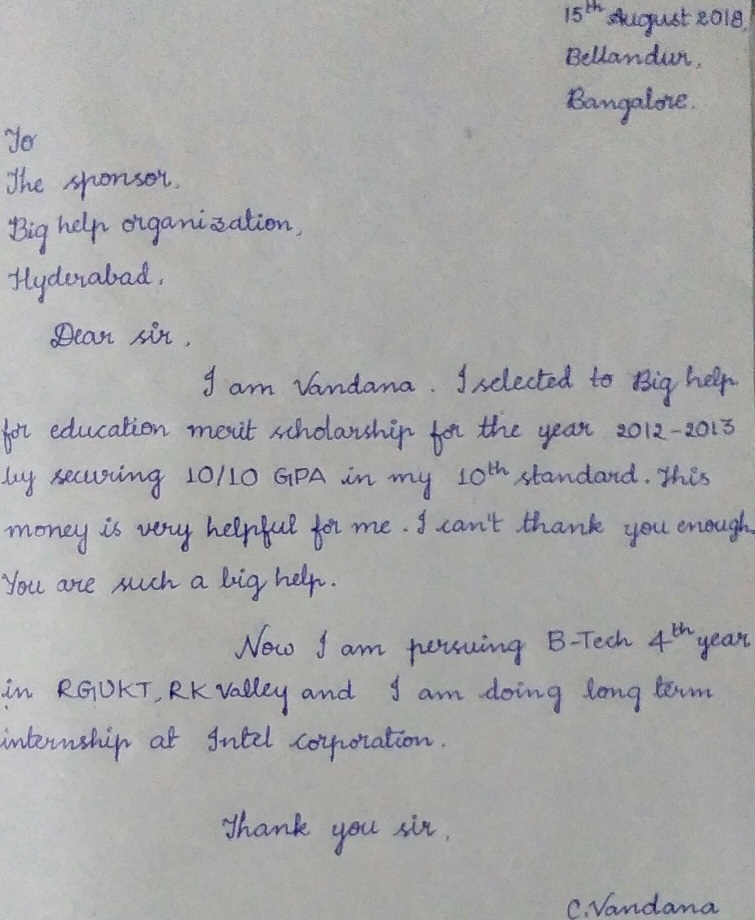 15th August 2018,
Bellandur,
Bangalore.
To
The sponsor,
Big help organization,
Hyderabad.
Dear sir,
I am Vandana. I selected to Big help
for education merit scholarship for the year 2012-2013
by securing 10/10 GPA in my 10th standard. This
money is very helpful for me. I can't thank you enough.
You are such a big help.
Now I am persuing B-Tech 4th year
in RGUKT, RK Valley and I am doing long term
internship at Intel corporation.
Thank you sir,
C.Vandana